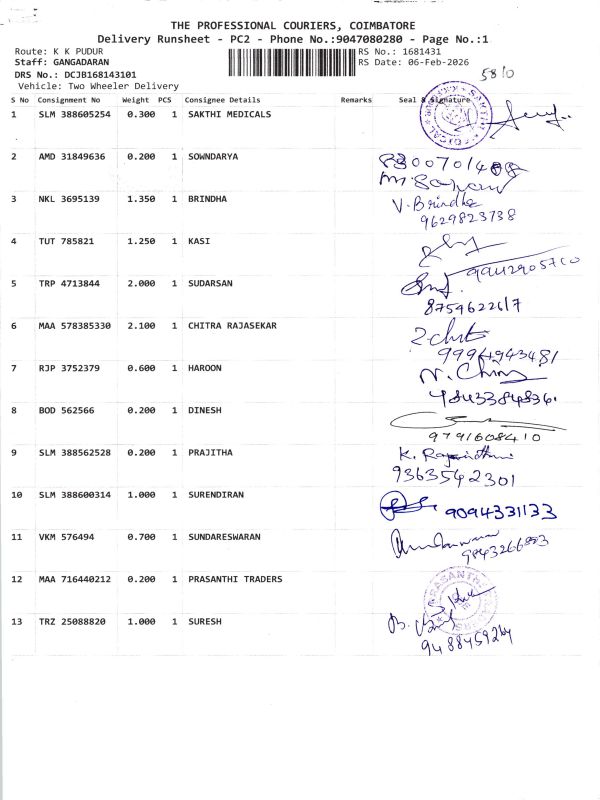 THE PROFESSIONAL COURIERS, COIMBATORE
Delivery Runsheet - PC2 - Phone No.:9047080280 - Page No.:1
Route: K K PUDUR
RS No.: 1681431
Staff: GANGADARAN
RS Date: 06-Feb-2026
DRS No.: DCJB168143101
5810
Vehicle: Two Wheeler Delivery
S No Consignment No Weight PCS Consignee Details Remarks Seal & Signature
1 SLM 388605254 0.300 1 SAKTHI MEDICALS
2 AMD 31849636 0.200 1 SOWNDARYA
3 NKL 3695139 1.350 1 BRINDHA
V. Brindha
9629823738
4 TUT 785821 1.250 1 KASI
5 TRP 4713844 2.000 1 SUDARSAN
8759622617
6 MAA 578385330 2.100 1 CHITRA RAJASEKAR
9994943481
7 RJP 3752379 0.600 1 HAROON
9843384836
8 BOD 562566 0.200 1 DINESH
9791608410
9 SLM 388562528 0.200 1 PRAJITHA
9363542301
10 SLM 388600314 1.000 1 SURENDIRAN
9094331133
11 VKM 576494 0.700 1 SUNDARESWARAN
12 MAA 716440212 0.200 1 PRASANTHI TRADERS
13 TRZ 25088820 1.000 1 SURESH